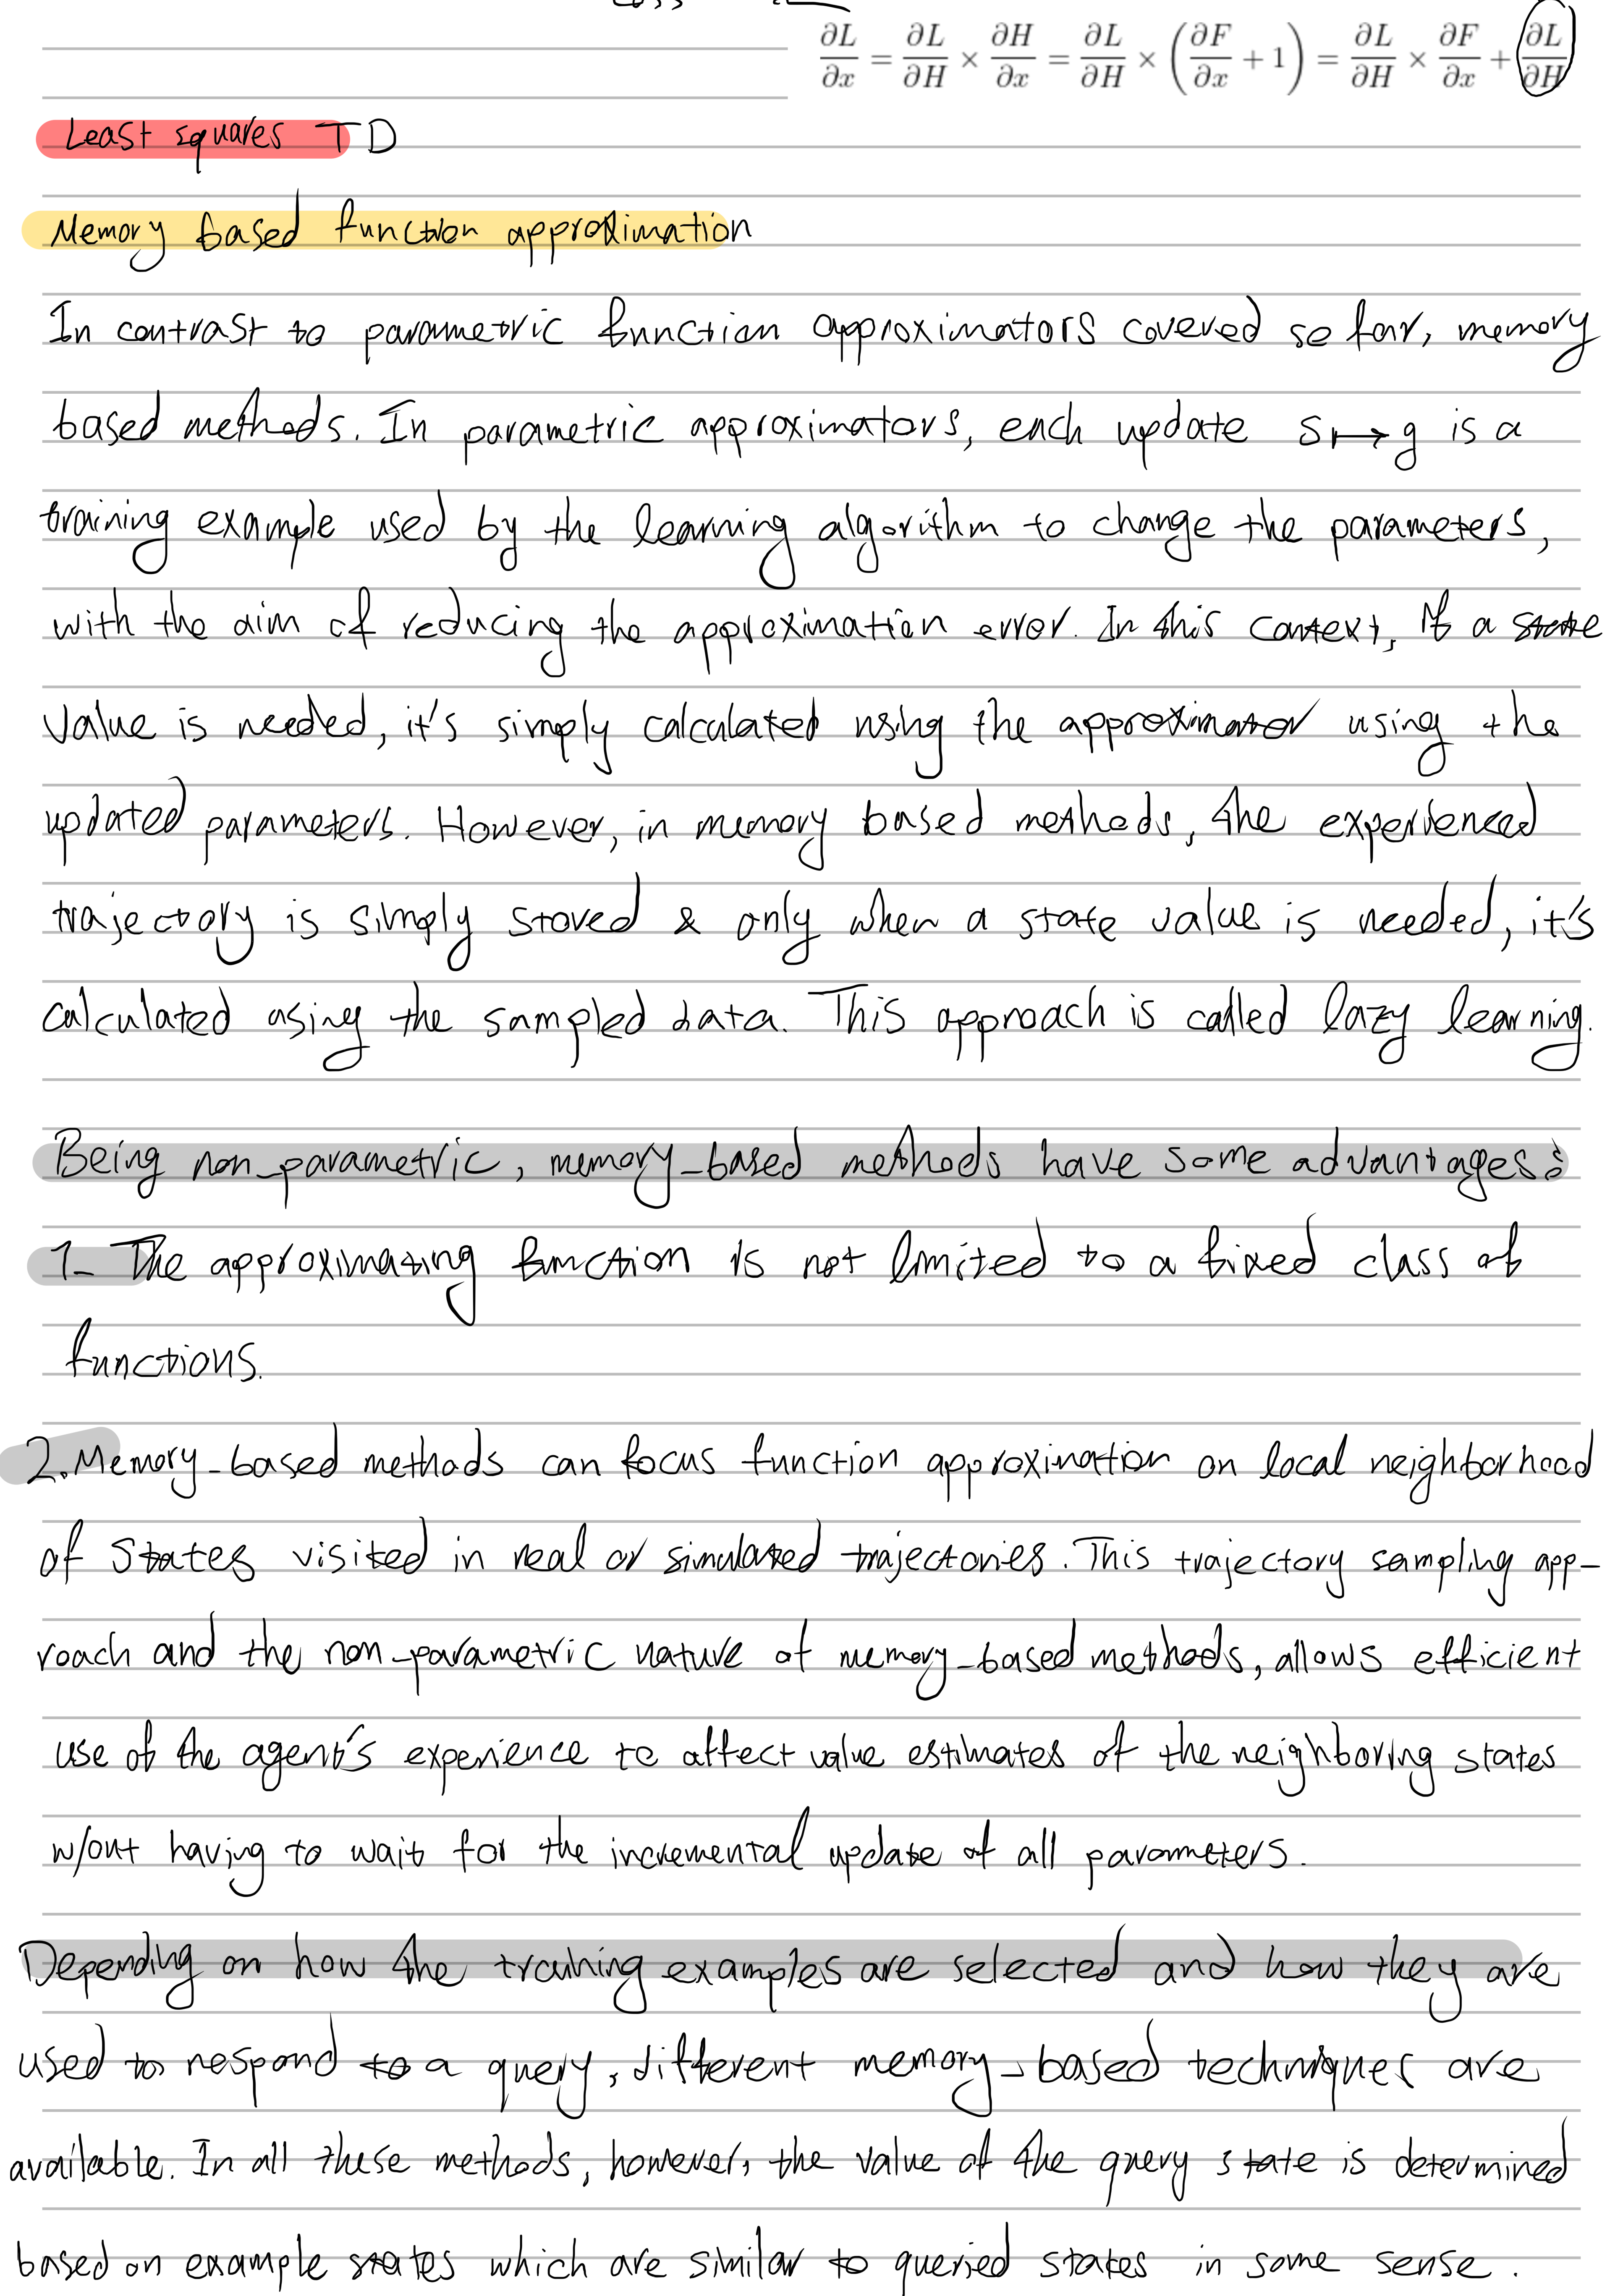 ∂L/∂x = ∂L/∂H × ∂H/∂x = ∂L/∂H × (∂F/∂x + 1) = ∂L/∂H × ∂F/∂x + ∂L/∂H
Least squares TD
Memory based function approximation
In contrast to parametric function approximators covered so far, memory
based methods. In parametric approximators, each update s↦g is a
training example used by the learning algorithm to change the parameters,
with the aim of reducing the approximation error. In this context, If a state
value is needed, it's simply calculated using the approximator using the
updated parameters. However, in memory based methods, the experienced
trajectory is simply stored & only when a state value is needed, it's
calculated using the sampled data. This approach is called lazy learning.
Being non_parametric, memory_based methods have some advantages:
1_ The approximating function is not limited to a fixed class of
functions.
2. Memory_based methods can focus function approximation on local neighborhood
of states visited in real or simulated trajectories. This trajectory sampling app_
roach and the non_parametric nature of memory_based methods, allows efficient
use of the agent's experience to affect value estimates of the neighboring states
w/out having to wait for the incremental update of all parameters.
Depending on how the training examples are selected and how they are
used to respond to a query, different memory_based techniques are
available. In all these methods, however, the value of the query state is determined
based on example states which are similar to queried states in some sense.